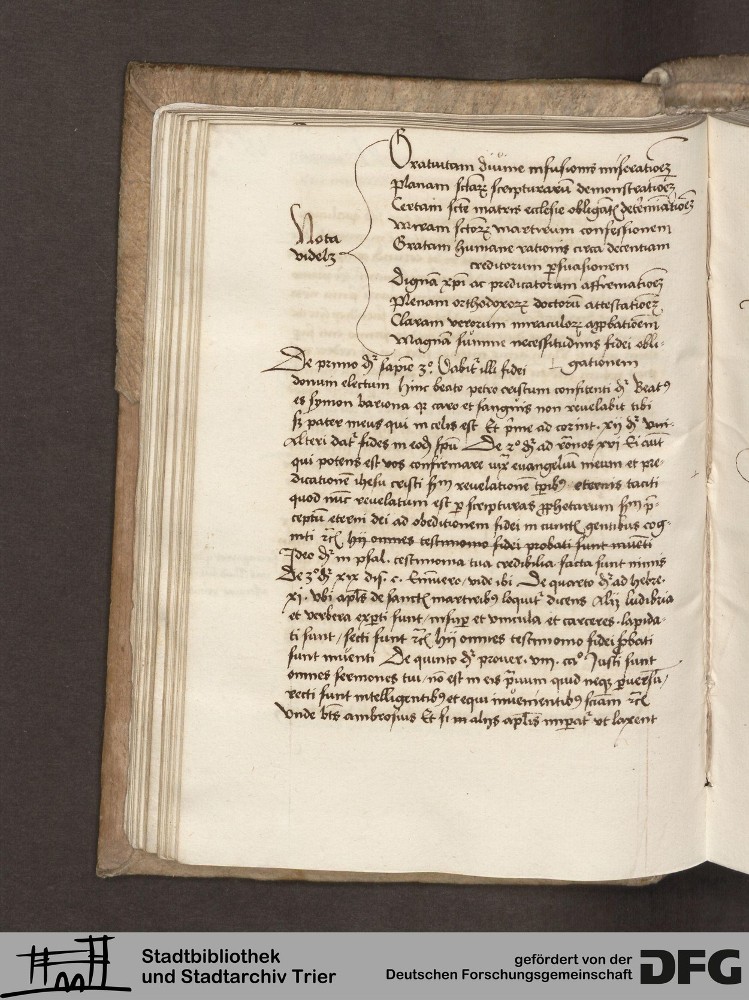 Gratuitam diuine infusionis miseratioēȝ
Planam sctaꝝ scripturaruȝ demonstratioēȝ
Certam scte matris ecclesie obligatẽ determinatioēȝ
Miram sctoꝝ martirum confessionem
Nota
videlȝ
Gratam humane rationis circa decentiam
creditorum ꝑsuasionem
Dignā xpi ac predicatorum affirmatioēȝ
Plenam orthodoxoꝝ doctorū attestatioēȝ
Claram verorum miraculoꝝ aꝓbatioēm
Magnā sūme necessitudinis fidei obli-
gationem
De primo dr̄ sapiē 3º. Dabit̄ illi fidei
donum electum hinc beato petro cristum confitenti dr̄ Beatꝰ
es symon bariona qr caro et sanguis non reuelabit tibi
sȝ pater meus qui in celis est Et p̄me ad corint. xij dr̄ vni-
Alteri dat̄ fides in eodē spū De 2º dr̄ ad rōnos xvi Ei aut
qui potens est vos confirmare iux̄ euangeliū meum et pre-
dicationē ihesu cristi scdm reuelationē tꝑibꝰ eternis taciti
quod nūc reuelatum est ꝑ scripturas ꝓphetarum scdm p̄-
ceptū eterni dei ad obeditionem fidei in cunctẽ gentibus cog-
niti ⁊cẽ hij omnes testimonio fidei probati sunt inuēti
Ideo dr̄ in psal. testimonia tua credibilia facta sunt nimis
De 3º dr̄ xix dis. c. Enimuero vide ibi De quarto dr̄ ad hebre.
xi. vbi apls de sanctẽ martiribꝰ loquit̄ dicens Alij ludibria
et verbera exꝑti sunt / insuꝑ et vincula et carceres . lapida-
ti sunt / secti sunt ⁊cẽ hij omnes testimonio fidei ꝓbati
sunt inuenti De quinto dr̄ prouer. viij. caº Iusti sunt
omnes sermones tui / nō est in eis p̄uum quid neqꝫ ꝑuersū /
recti sunt intelligentibꝰ et equi inuenientibꝰ sciām ⁊cẽ
vnde btūs ambrosius Et si in alijs apls imꝑat̄ vt laxent
Stadtbibliothek
und Stadtarchiv Trier
gefördert von der
Deutschen Forschungsgemeinschaft
DFG